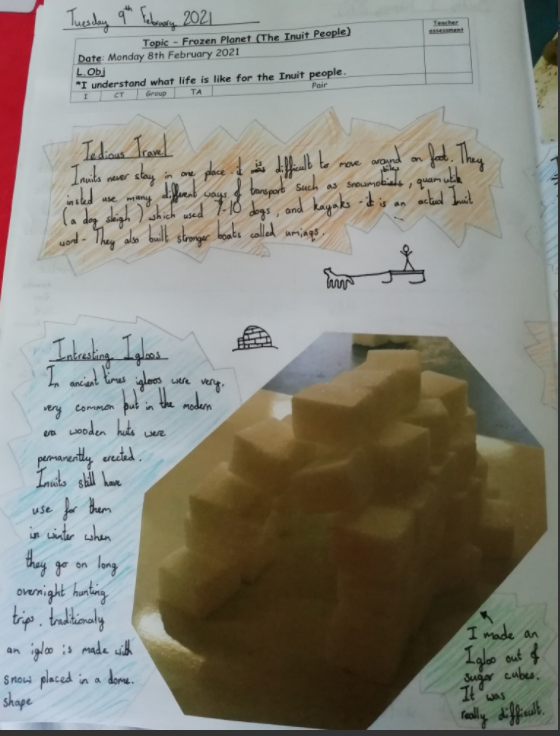 Tuesday 9th February 2021
Teacher
assessment
Topic – Frozen Planet (The Inuit People)
Date: Monday 8th February 2021
L.Obj
*I understand what life is like for the Inuit people.
I CT Group TA Pair
Tedious Travel
Inuits never stay in one place. it is difficult to move around on foot. They
insted use many different ways of transport such as snowmobiles, quamutik
(a dog sleigh) which used 7-10 dogs, and kayaks - it is an actual Inuit
word - They also built stronger boats called
Intresting Igloos
In ancient times igloos were very,
very common but in the modern
era wooden huts were
permanently erected.
Inuits still have
use for them
in winter when
they go on long
overnight hunting
trips, traditionaly
an igloo is made with
snow placed in a dome.
shape
I made an
Igloo out of
sugar cubes.
It was
really difficult.